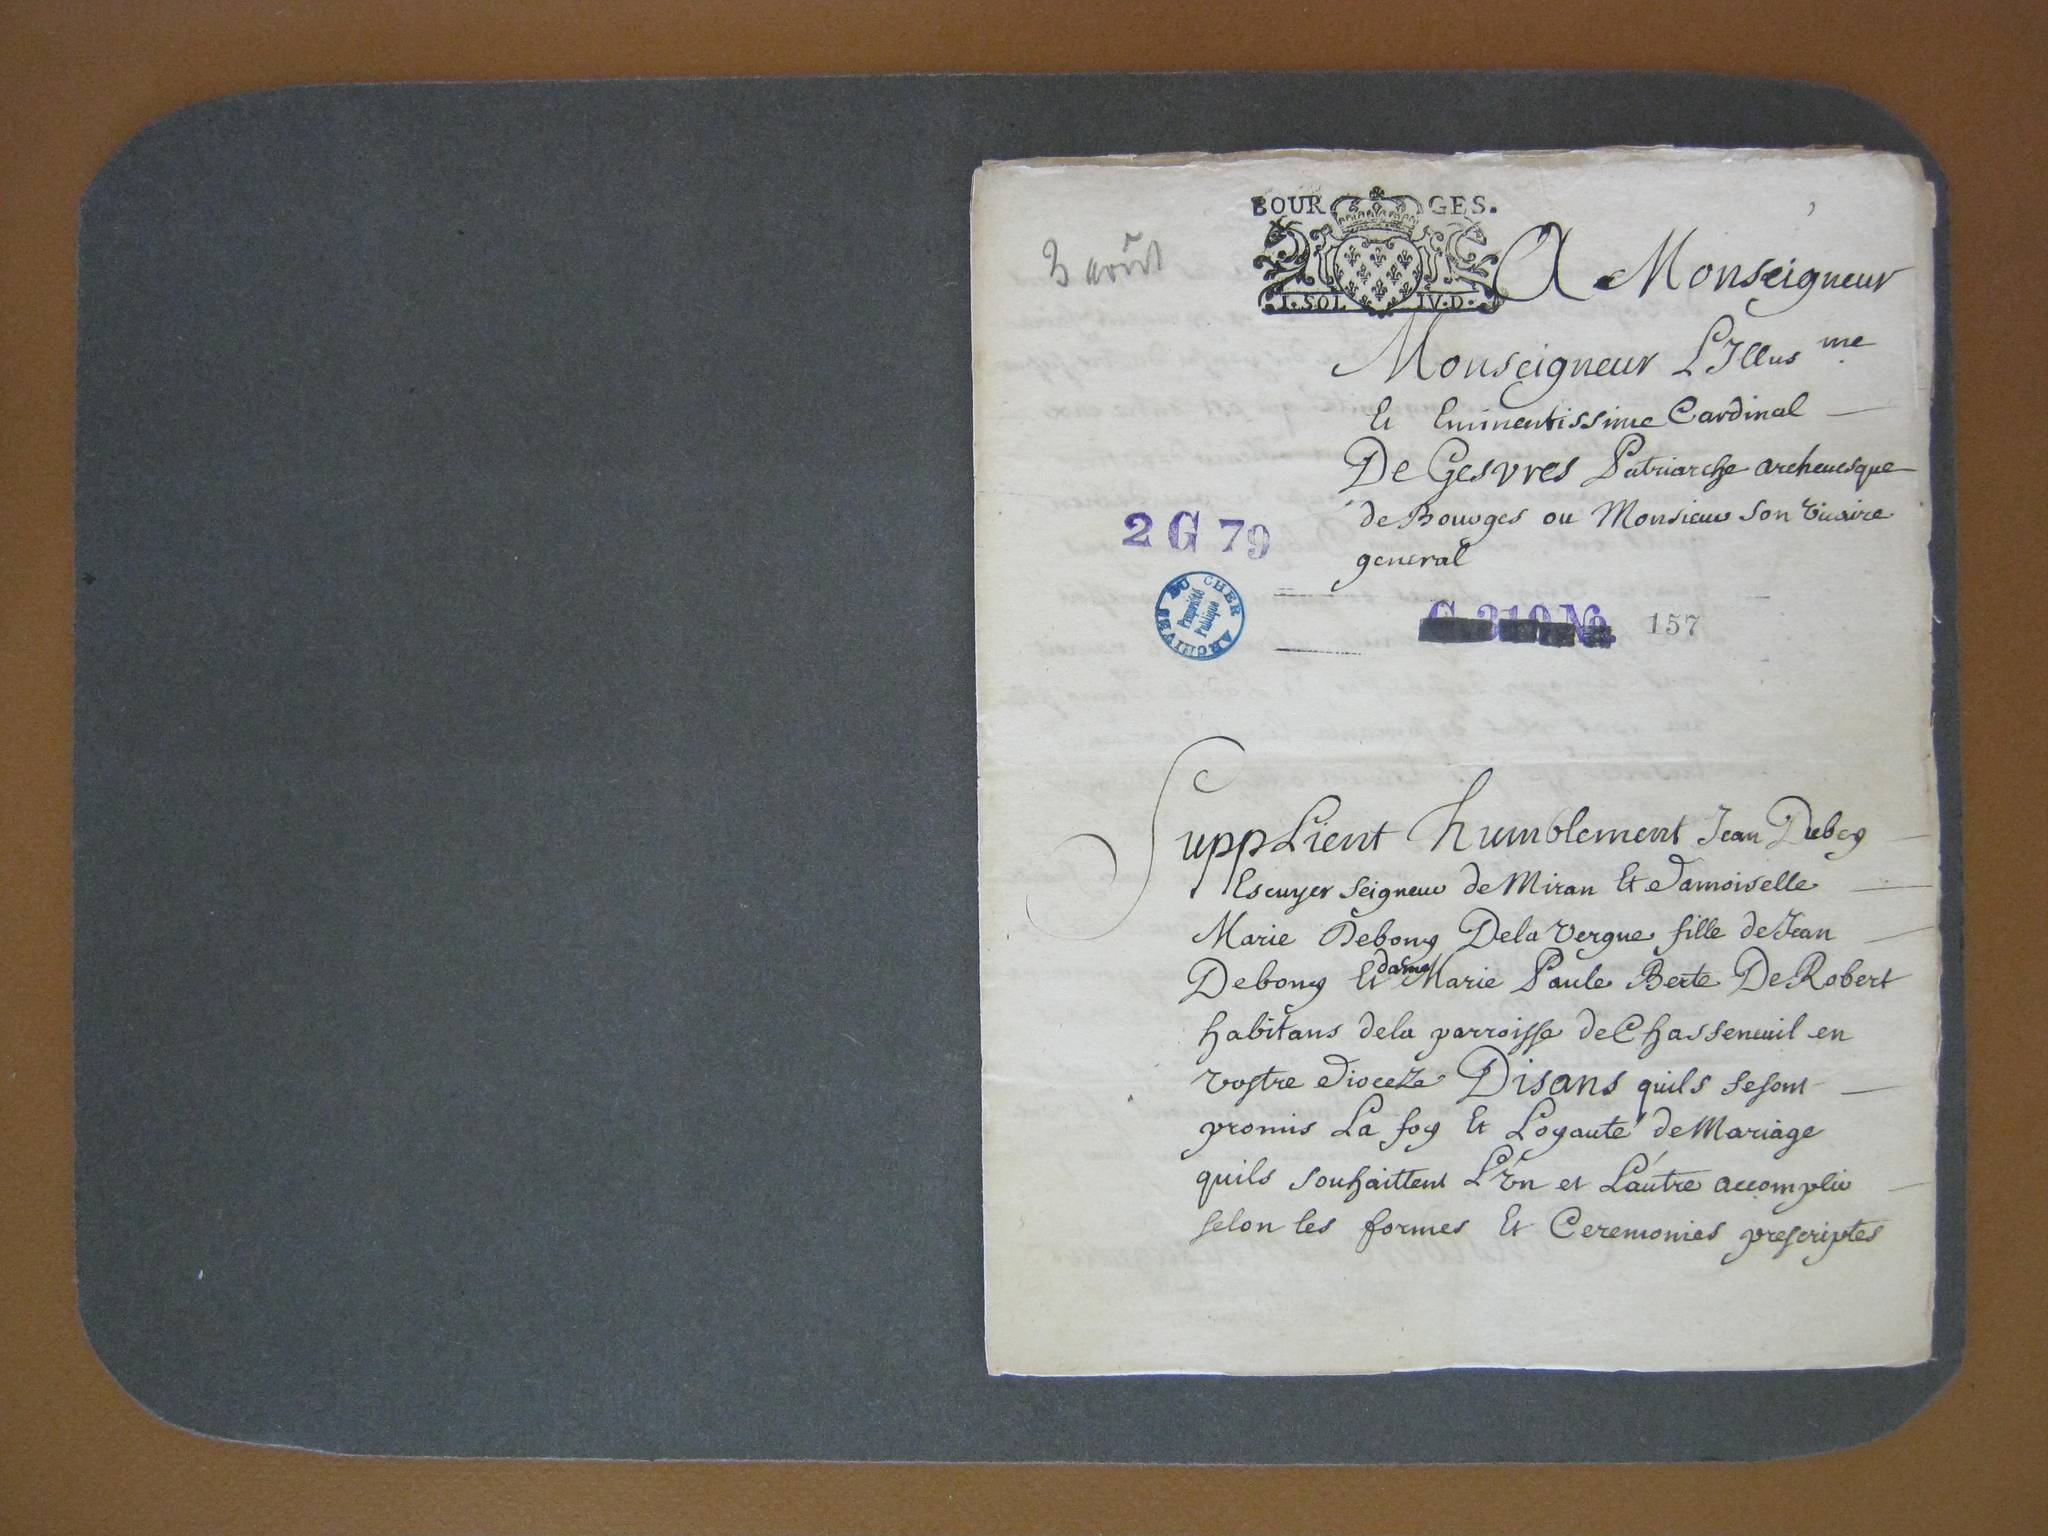 BOURGES.
3 avril
I. SOL IV. D.
A Monseigneur
Monseigneur L'Illus.me
Et Eminentissime Cardinal
De Gesvres Patriarche archeuesque
de Bourges ou Monsieur son vicaire
general
2 G 79
ARCHIVES DU CHER
Propriété
Publique
G 310 No 157
Supplient humblement Jean Dubey
Escuyer seigneur de Miran Et damoiselle
Marie Debony Dela Vergne fille de Jean
Debony Et dame Marie Paule Berte De Robert
habitans dela parroisse de Chasseneuil en
vostre dioceze Disans quils se sont
promis La foy Et Loyauté de Mariage
quils souhaittent L'un et L'autre accomplir
selon les formes Et Ceremonies prescriptes